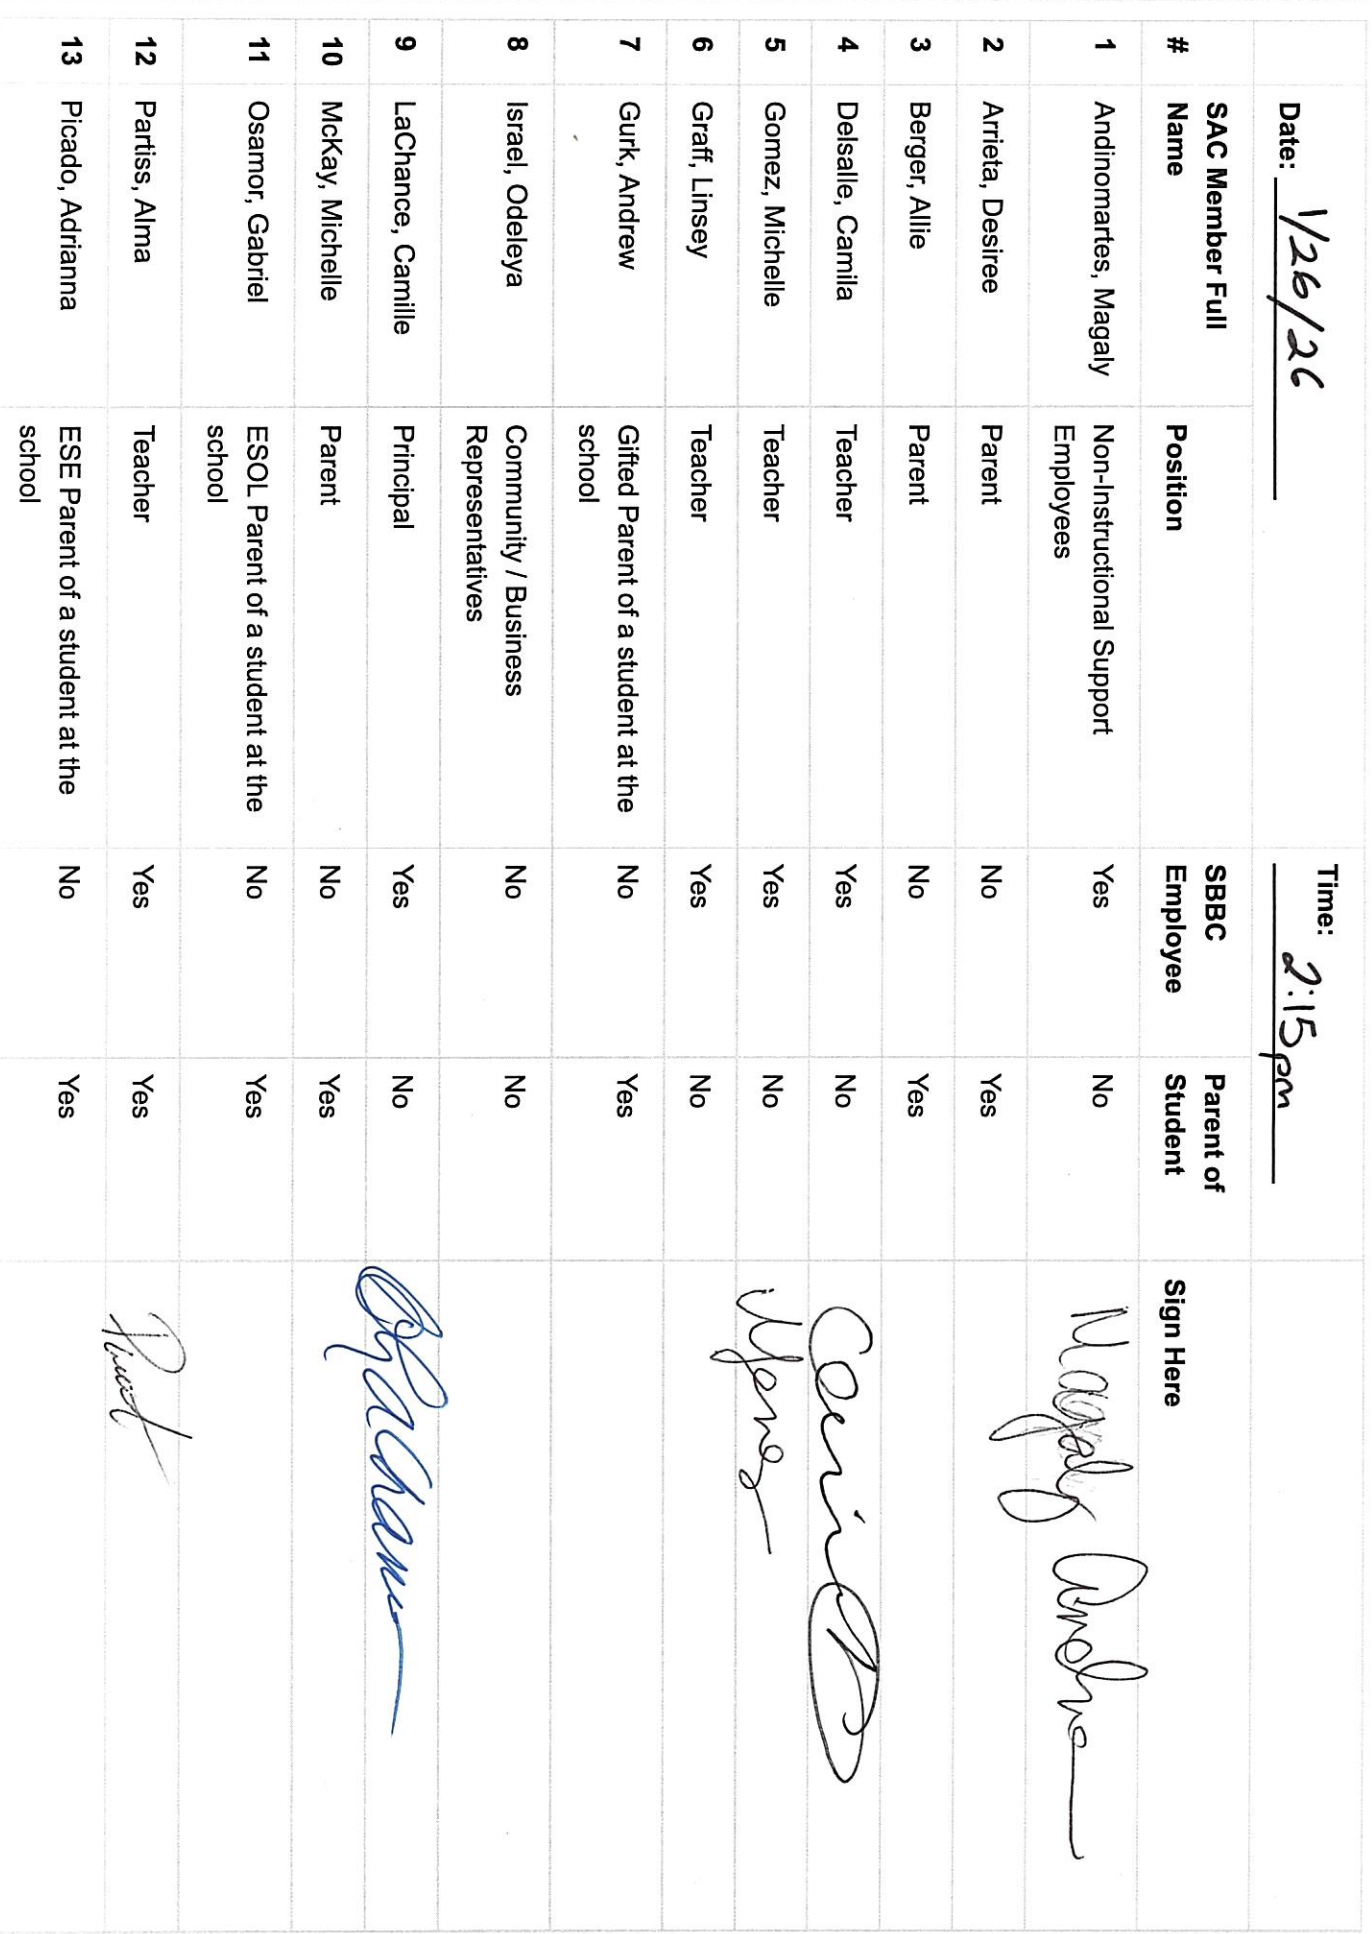 Date: 1/26/26 Time: 2:15pm
# SAC Member Full Name Position SBBC Employee Parent of Student Sign Here
1 Andinomartes, Magaly Non-Instructional Support Employees Yes No Magaly
2 Arrieta, Desiree Parent No Yes
3 Berger, Allie Parent No Yes
4 Delsalle, Camila Teacher Yes No
5 Gomez, Michelle Teacher Yes No
6 Graff, Linsey Teacher Yes No
7 Gurk, Andrew Gifted Parent of a student at the school No Yes
8 Israel, Odeleya Community / Business Representatives No No
9 LaChance, Camille Principal Yes No
10 McKay, Michelle Parent No Yes
11 Osamor, Gabriel ESOL Parent of a student at the school No Yes
12 Partiss, Alma Teacher Yes Yes
13 Picado, Adrianna ESE Parent of a student at the school No Yes